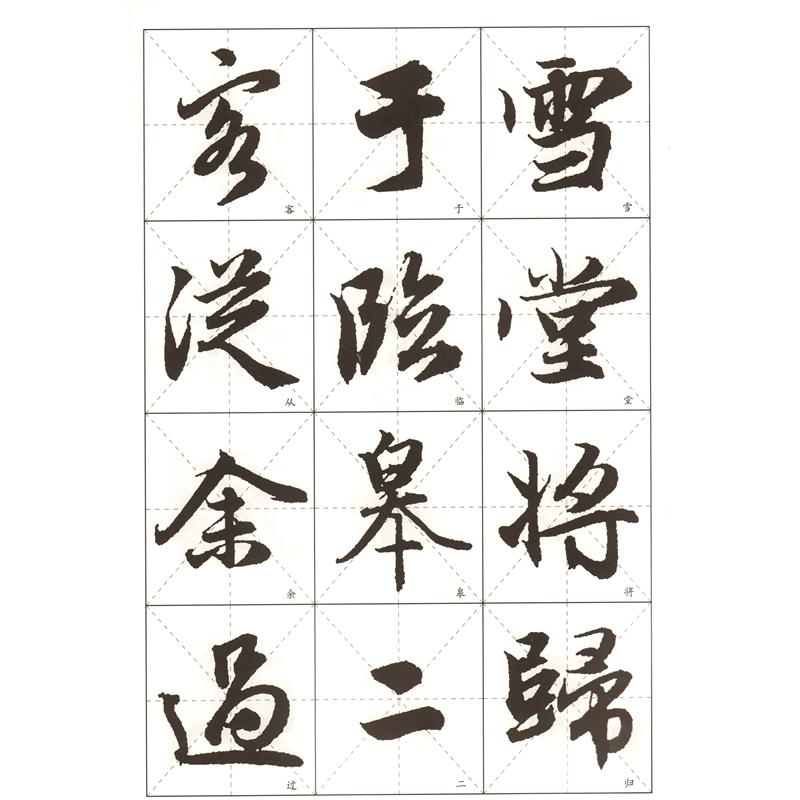 雪堂將歸
于臨皋二
客從余過
雪堂将归
于临皋二
客从余过